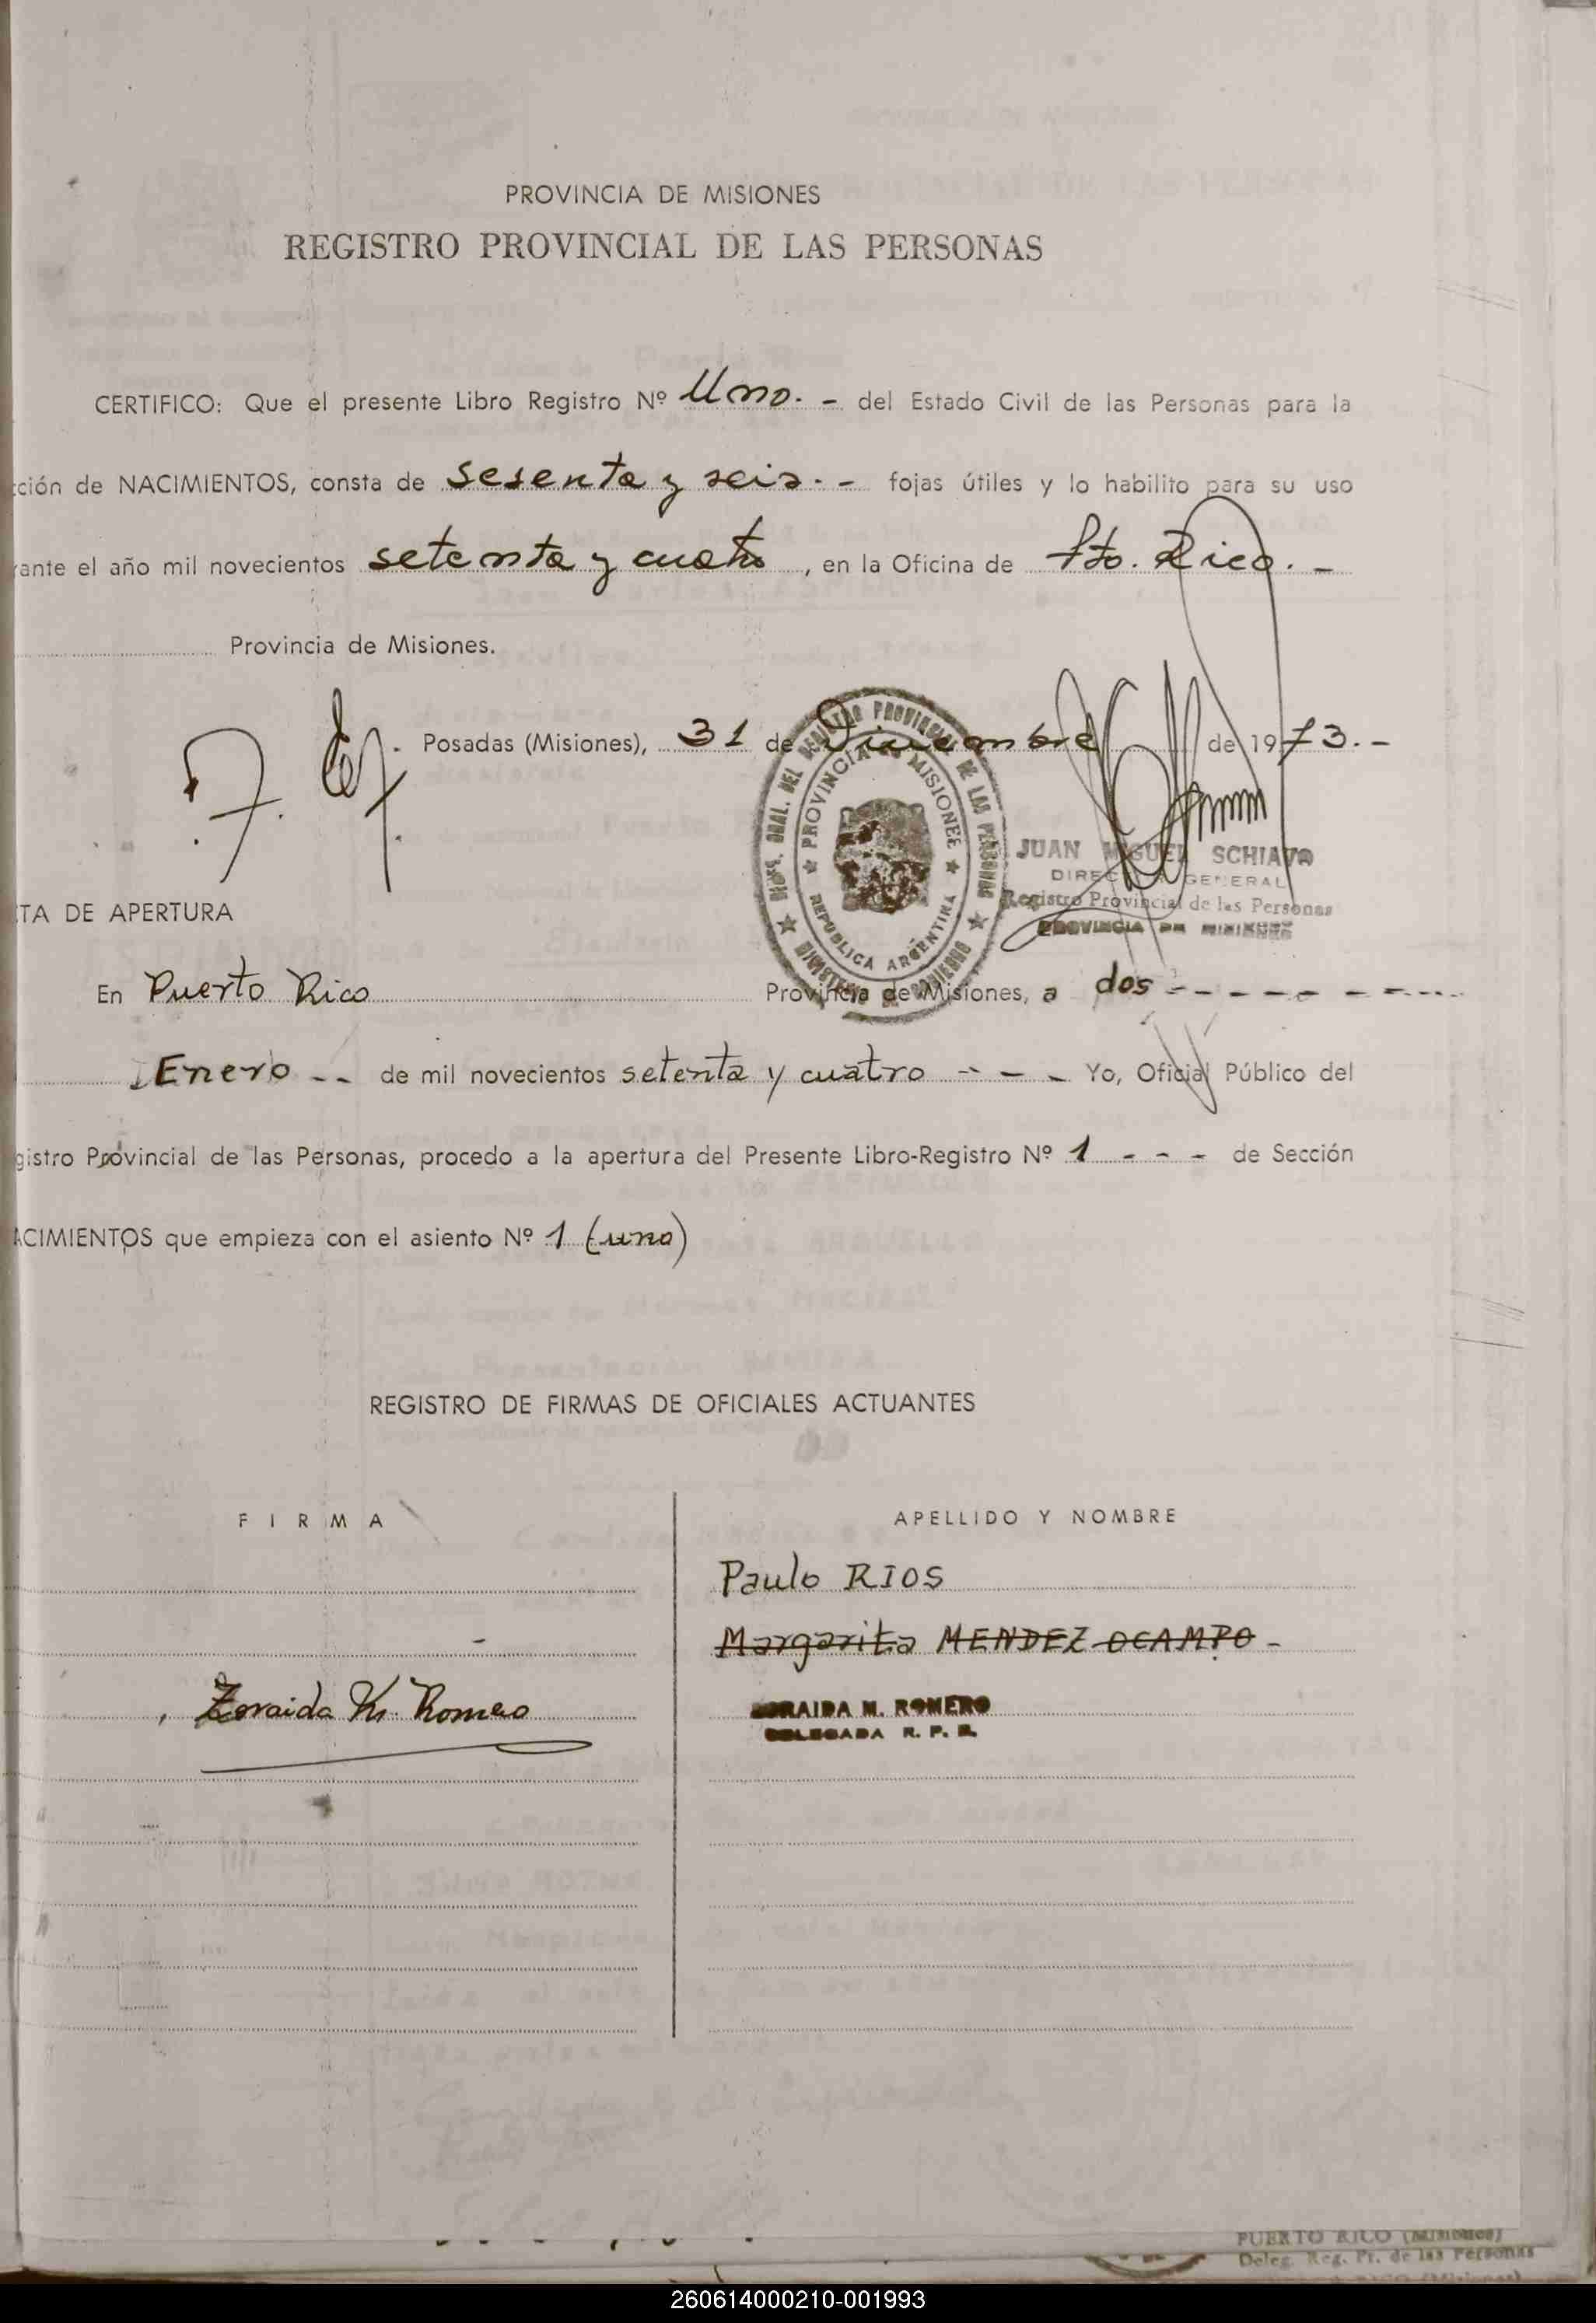 PROVINCIA DE MISIONES
REGISTRO PROVINCIAL DE LAS PERSONAS
CERTIFICO: Que el presente Libro Registro Nº Uno. - del Estado Civil de las Personas para la
ción de NACIMIENTOS, consta de sesenta y seis. - fojas útiles y lo habilito para su uso
ante el año mil novecientos setenta y cuatro, en la Oficina de Pto. Rico. -
Provincia de Misiones.
Posadas (Misiones), 31 de Diciembre de 1973. -
DEL REGISTRO PROVINCIAL DE LAS PERSONAS
PROVINCIA DE MISIONES
REPUBLICA ARGENTINA
JUAN MIGUEL SCHIAVO
DIRECTOR GENERAL
Registro Provincial de las Personas
PROVINCIA DE MISIONES
TA DE APERTURA
En Puerto Rico Provincia de Misiones, a dos - - - - - - - -
Enero - - de mil novecientos setenta y cuatro - - - Yo, Oficial Público del
gistro Provincial de las Personas, procedo a la apertura del Presente Libro-Registro Nº 1 - - - de Sección
ACIMIENTOS que empieza con el asiento Nº 1 (uno)
REGISTRO DE FIRMAS DE OFICIALES ACTUANTES
FIRMA APELLIDO Y NOMBRE
Paulo RIOS
Margarita MENDEZ OCAMPO -
Zoraida M. Romero ZORAIDA M. ROMERO
DELEGADA R. P. P.
PUERTO RICO (Misiones)
Deleg. Reg. Pr. de las Personas
260614000210-001993